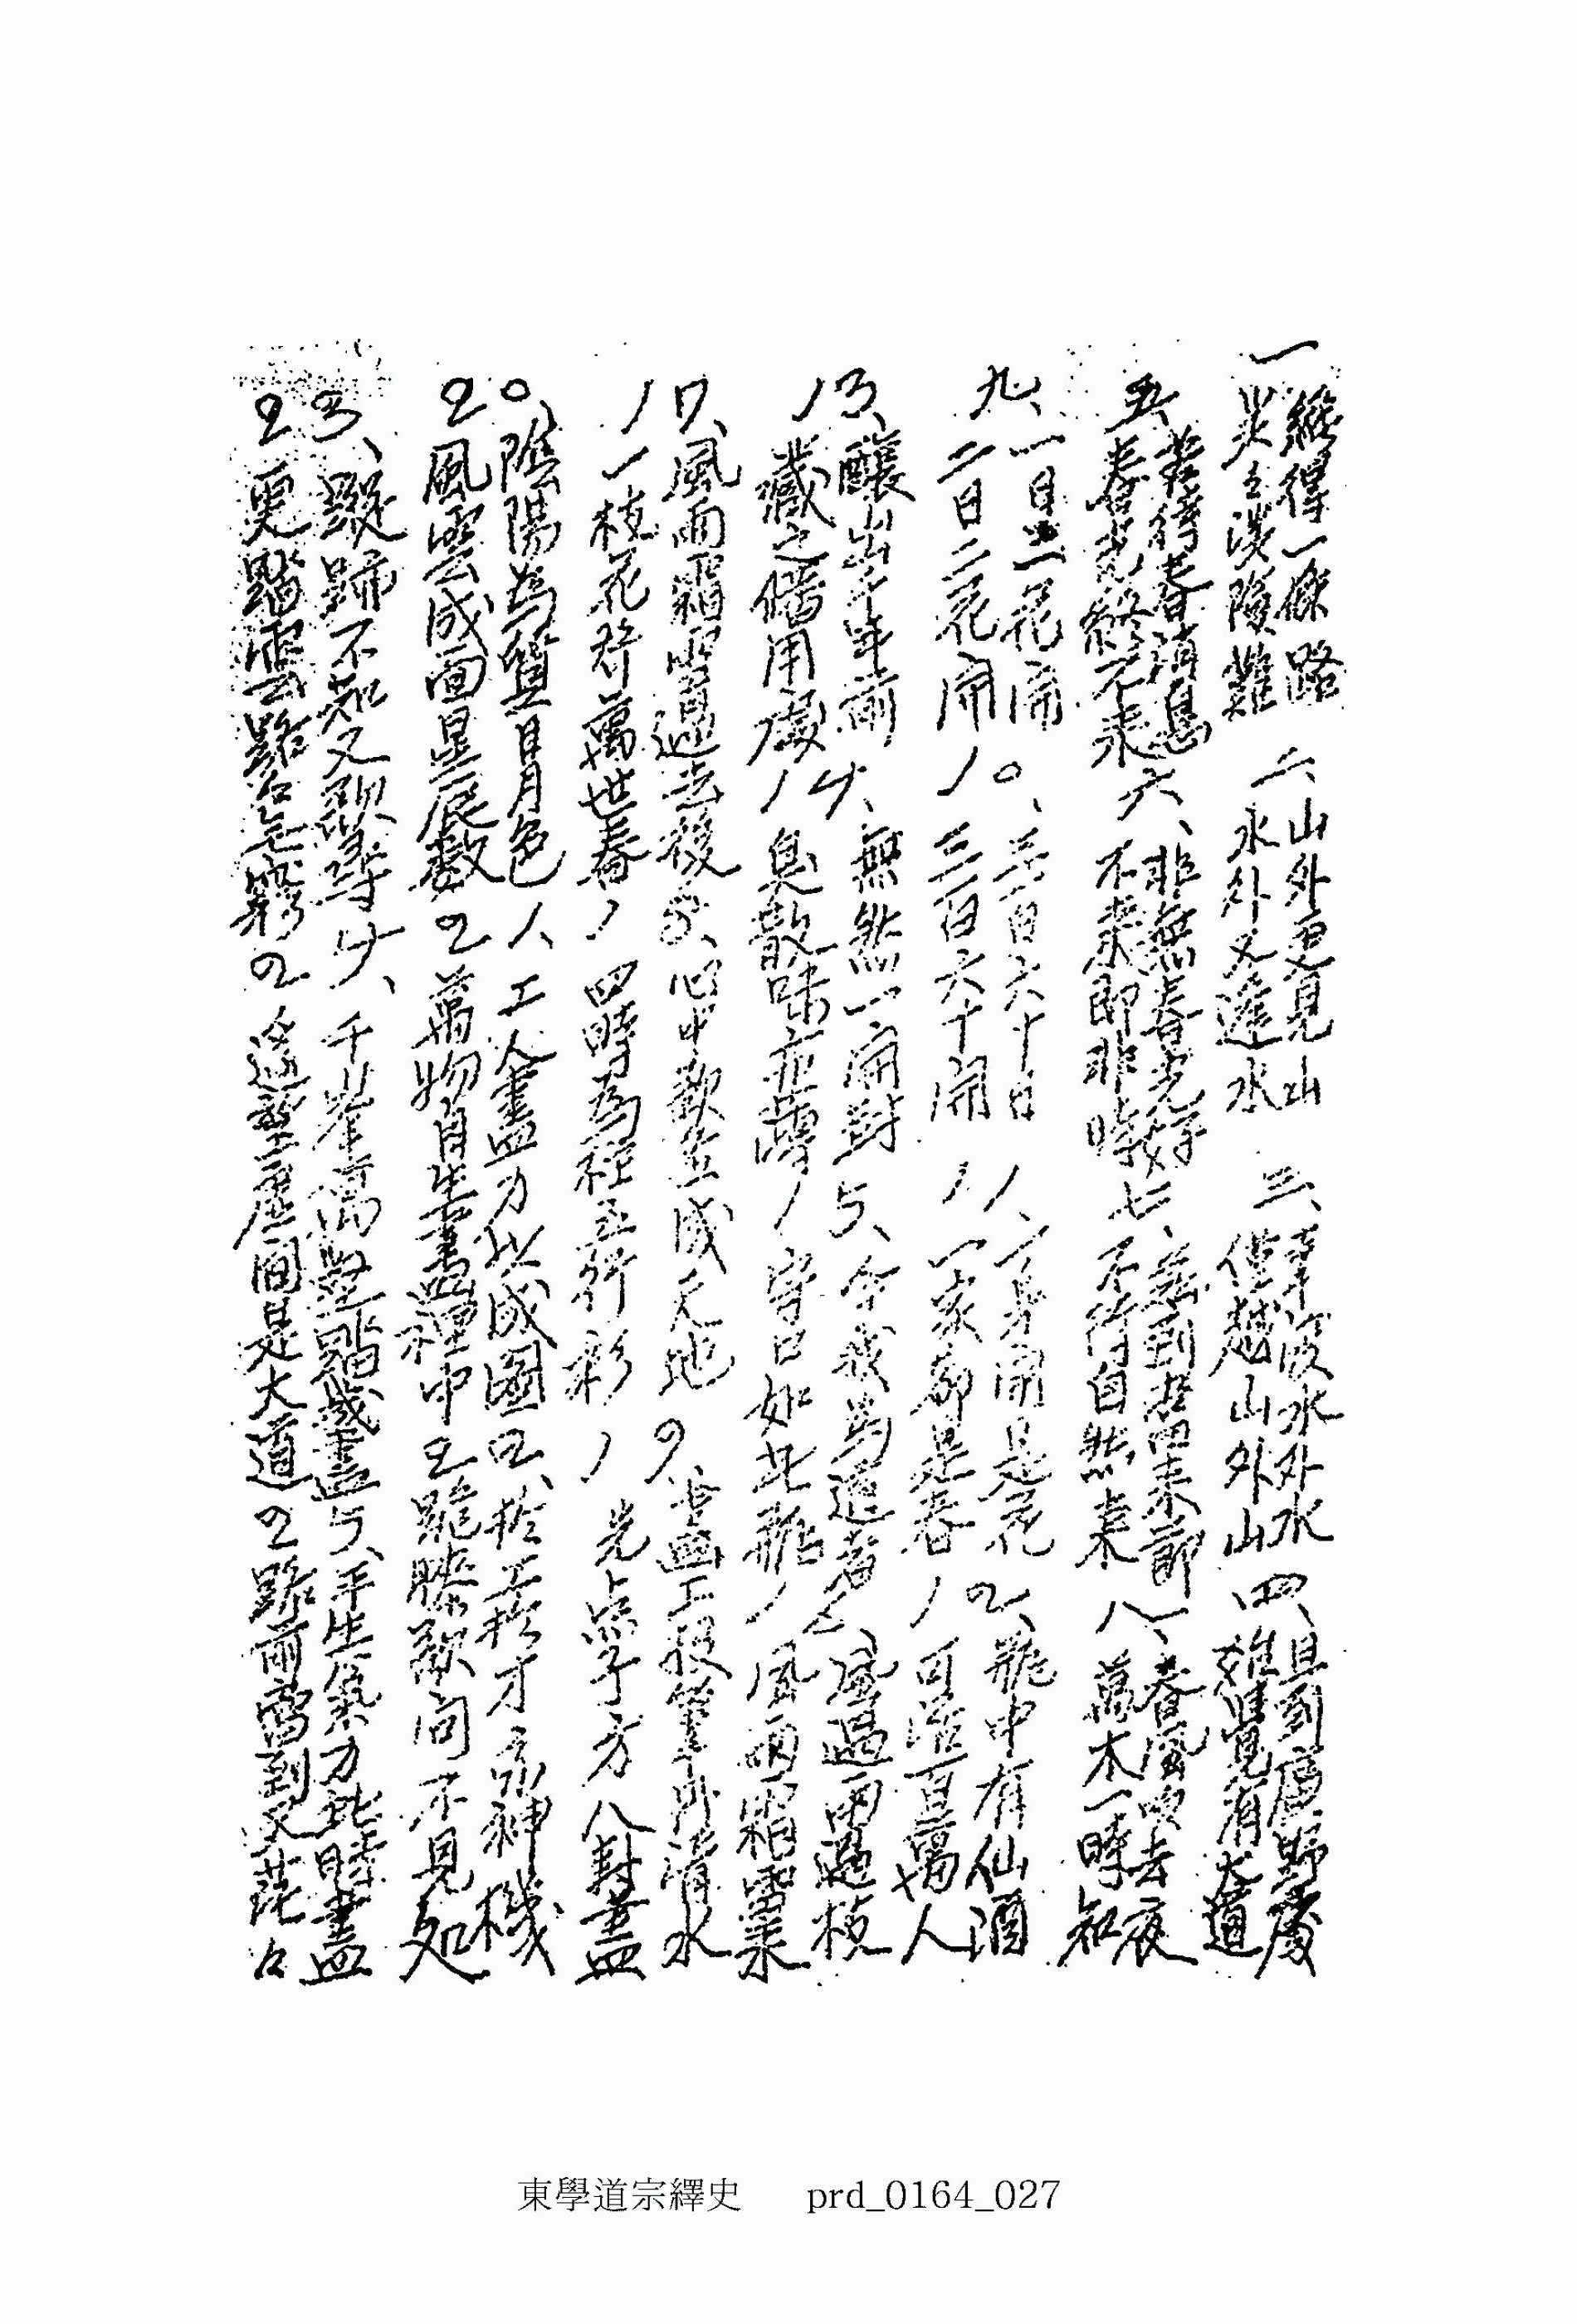 一 纔得一條路
步々涉險難
二、山外更見山
水外又逢水
三、幸渡水外水
僅越山外山
四、且到廣野處
始覺有大道
五、苦待春消息
春光終不来
六、非無春光好
不来即非時
七、茲到當来節
不待自然来
八、春風吹去夜
萬木一時知
九、一日一花開
二日二花開
10、三百六十日
三百六十開
11、一身開是花
一家都是春
12、瓶中有仙酒
可活百萬人
13、釀出千年前
藏之備用處
14、無然一開封
臭散味亦薄
15、今我為道者
守口如此瓶
16、風過雨過枝
風雨霜雪来
17、風雨霜雪過去後
一枝花發萬世春
18、心中欲畫成天地
四時為經五行彩
19、畫工投筆清水
先点子方八封畫
20、陰陽為質日月色
風雲成面星辰數
21、人工盡力化成圖
萬物自生畫裡中
22、於工於才亦神機
跪膝欲問不見処
23、蹤跡不知又欲尋
更踏雲路々無窮
24、千峯萬壑踏盡
遙望塵間是大道
25、平生氣力此時盡
路前當到又茫々
東學道宗繹史 prd_0164_027